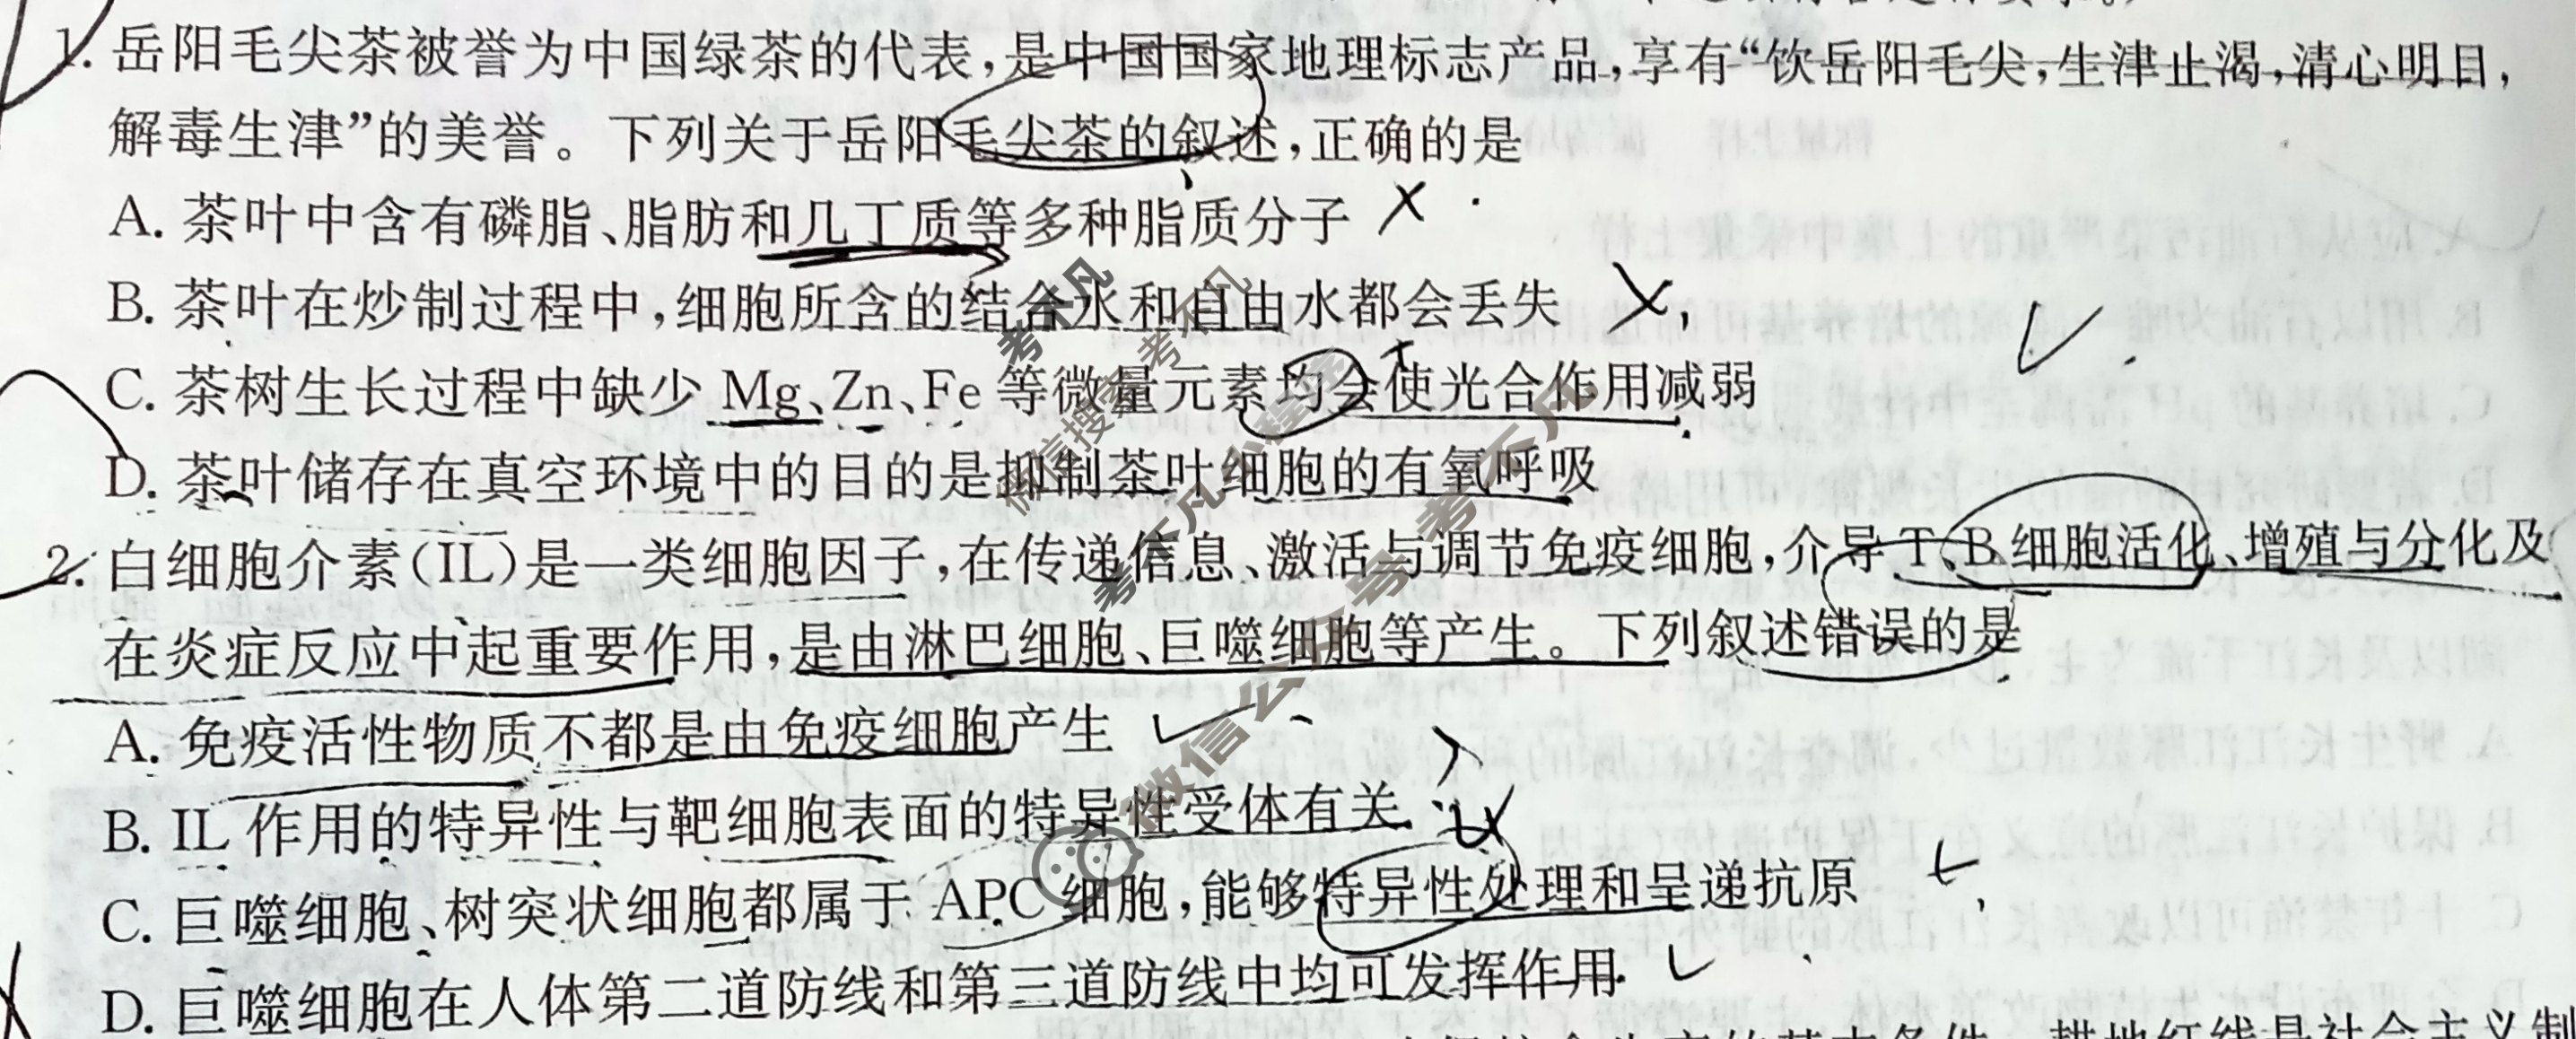 1. 岳阳毛尖茶被誉为中国绿茶的代表,是中国国家地理标志产品,享有“饮岳阳毛尖,生津止渴,清心明目,
解毒生津”的美誉。下列关于岳阳毛尖茶的叙述,正确的是
A. 茶叶中含有磷脂、脂肪和几丁质等多种脂质分子
B. 茶叶在炒制过程中,细胞所含的结合水和自由水都会丢失
C. 茶树生长过程中缺少 Mg、Zn、Fe 等微量元素均会使光合作用减弱
D. 茶叶储存在真空环境中的目的是抑制茶叶细胞的有氧呼吸
2. 白细胞介素(IL)是一类细胞因子,在传递信息、激活与调节免疫细胞,介导 T、B 细胞活化、增殖与分化及
在炎症反应中起重要作用,是由淋巴细胞、巨噬细胞等产生。下列叙述错误的是
A. 免疫活性物质不都是由免疫细胞产生
B. IL 作用的特异性与靶细胞表面的特异性受体有关
C. 巨噬细胞、树突状细胞都属于 APC 细胞,能够特异性处理和呈递抗原
D. 巨噬细胞在人体第二道防线和第三道防线中均可发挥作用
考不凡
微信搜索 考不凡小程序
考不凡
微信公众号 考不凡